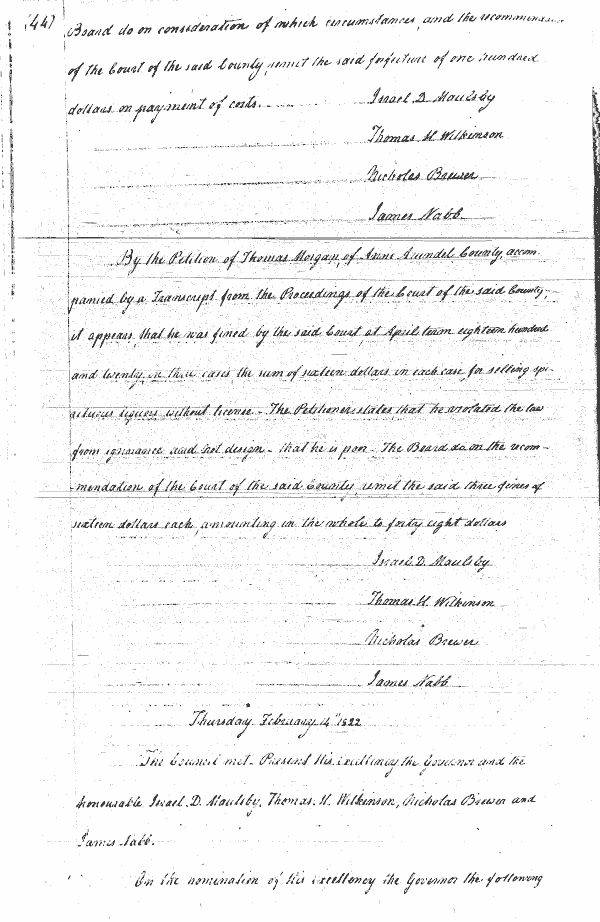 (44)
Board do on consideration of which circumstances, and the recommenda
of the Court of the said County, remit the said forfeiture of one hundred
dollars on payment of costs.
Israel D. Maulsby
Thomas H. Wilkinson
Nicholas Brewer
James Nabb
By the Petition of Thomas Morgan, of Anne Arundel County, accom
panied by a Transcript from the Proceedings of the Court of the said County,
it appears that he was fined by the said Court at April term eighteen hundred
and twenty, in three cases the sum of sixteen dollars in each case for selling spi-
rituous liquors without license - The Petitioner states that he violated the law
from ignorance and not design - that he is poor - The Board do on the recom-
-mendation of the Court of the said County, remit the said three fines of
sixteen dollars each, amounting in the whole to forty eight dollars
Israel D. Maulsby
Thomas H. Wilkinson
Nicholas Brewer
James Nabb
Thursday February 14" 1822
The Council met - Present His excellency the Governor and the
honourable Israel D. Maulsby, Thomas H. Wilkinson, Nicholas Brewer and
James Nabb.
On the nomination of His excellency the Governor the following